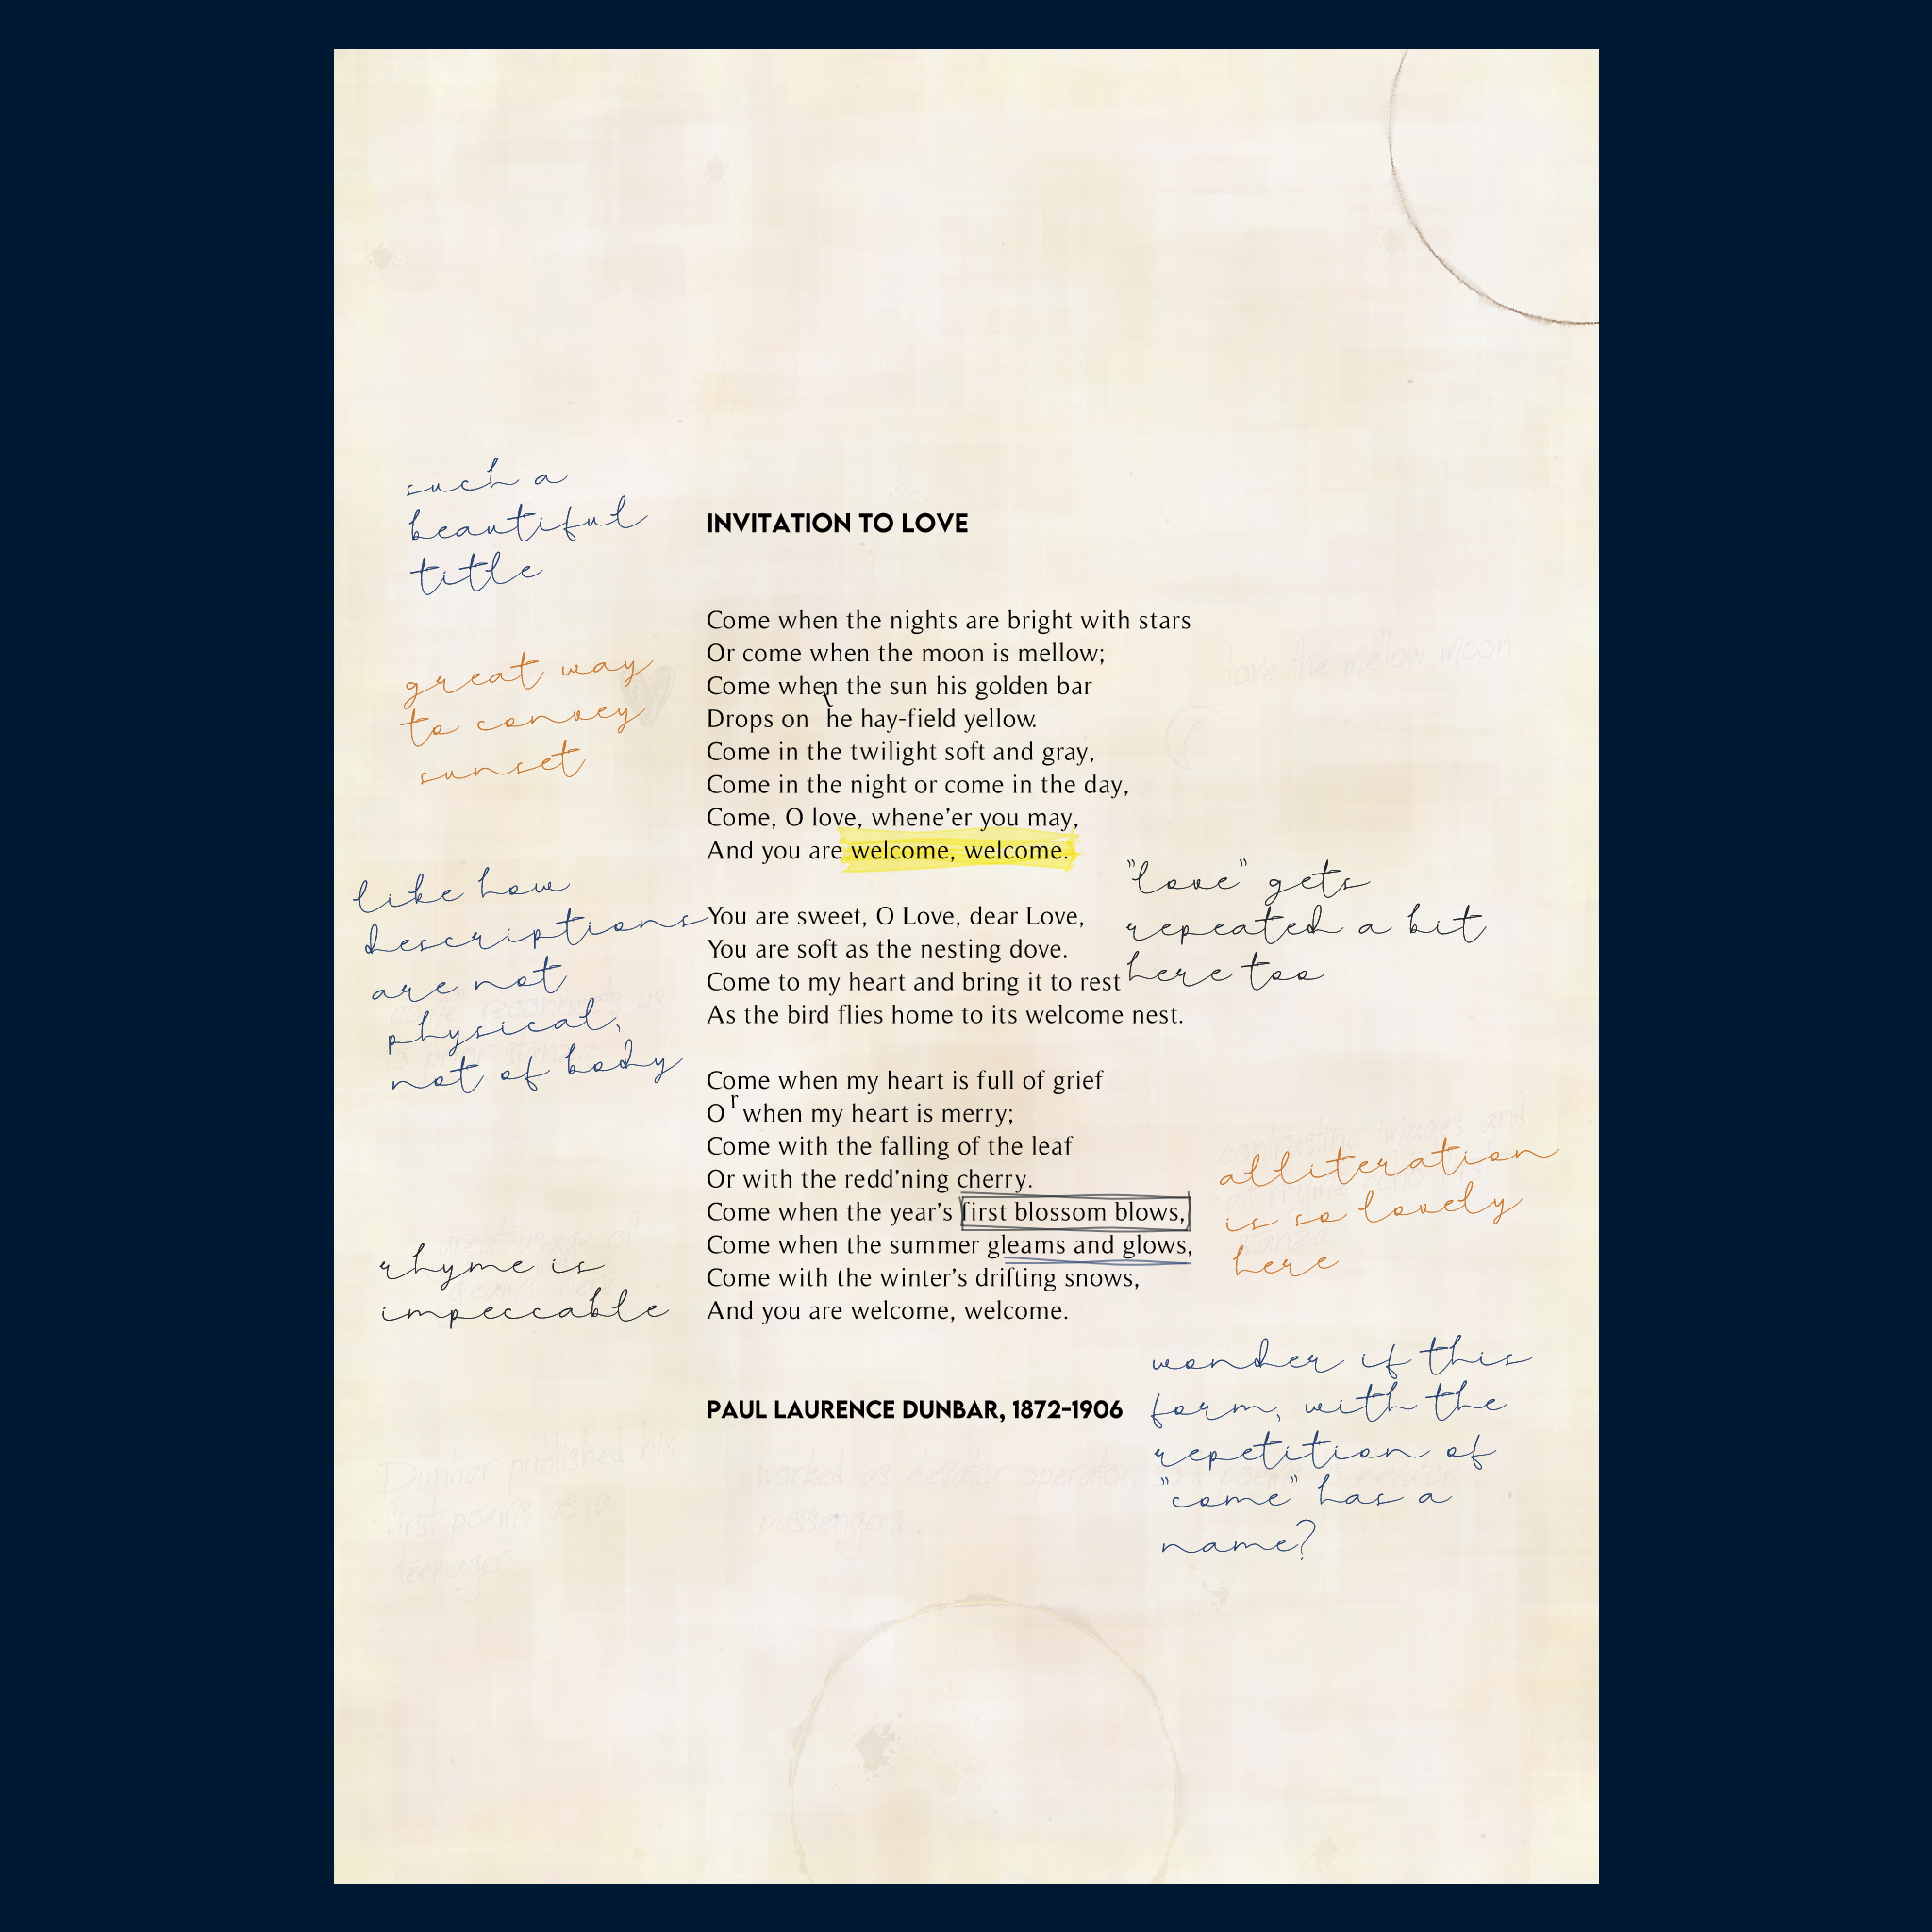 such a
beautiful
title
INVITATION TO LOVE
Come when the nights are bright with stars
Or come when the moon is mellow;
love the mellow moon
Come when the sun his golden bar
Drops on the hay-field yellow.
great way
to convey
sunset
Come in the twilight soft and gray,
Come in the night or come in the day,
Come, O love, whene'er you may,
And you are welcome, welcome.
like how
descriptions
are not
physical,
not of body
"love" gets
repeated a bit
here too
You are sweet, O Love, dear Love,
You are soft as the nesting dove.
Come to my heart and bring it to rest
As the bird flies home to its welcome nest.
reconnects us
Come when my heart is full of grief
Or when my heart is merry;
Come with the falling of the leaf
Or with the redd'ning cherry.
Come when the year's first blossom blows,
Come when the summer gleams and glows,
Come with the winter's drifting snows,
And you are welcome, welcome.
contrasting images and
stanza
alliteration
is so lovely
here
great usage of
rhyme is
impeccable
PAUL LAURENCE DUNBAR, 1872-1906
wonder if this
form, with the
repetition of
"come" has a
name?
Dunbar published his
first poems as a
teenager
worked as elevator operator, poems elevator
passengers